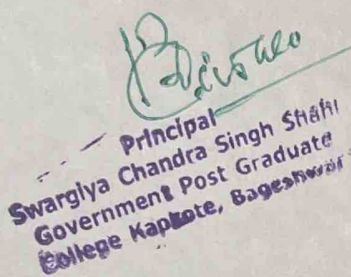 Principal
Swargiya Chandra Singh Shahi
Government Post Graduate
College Kapkote, Bageshwar